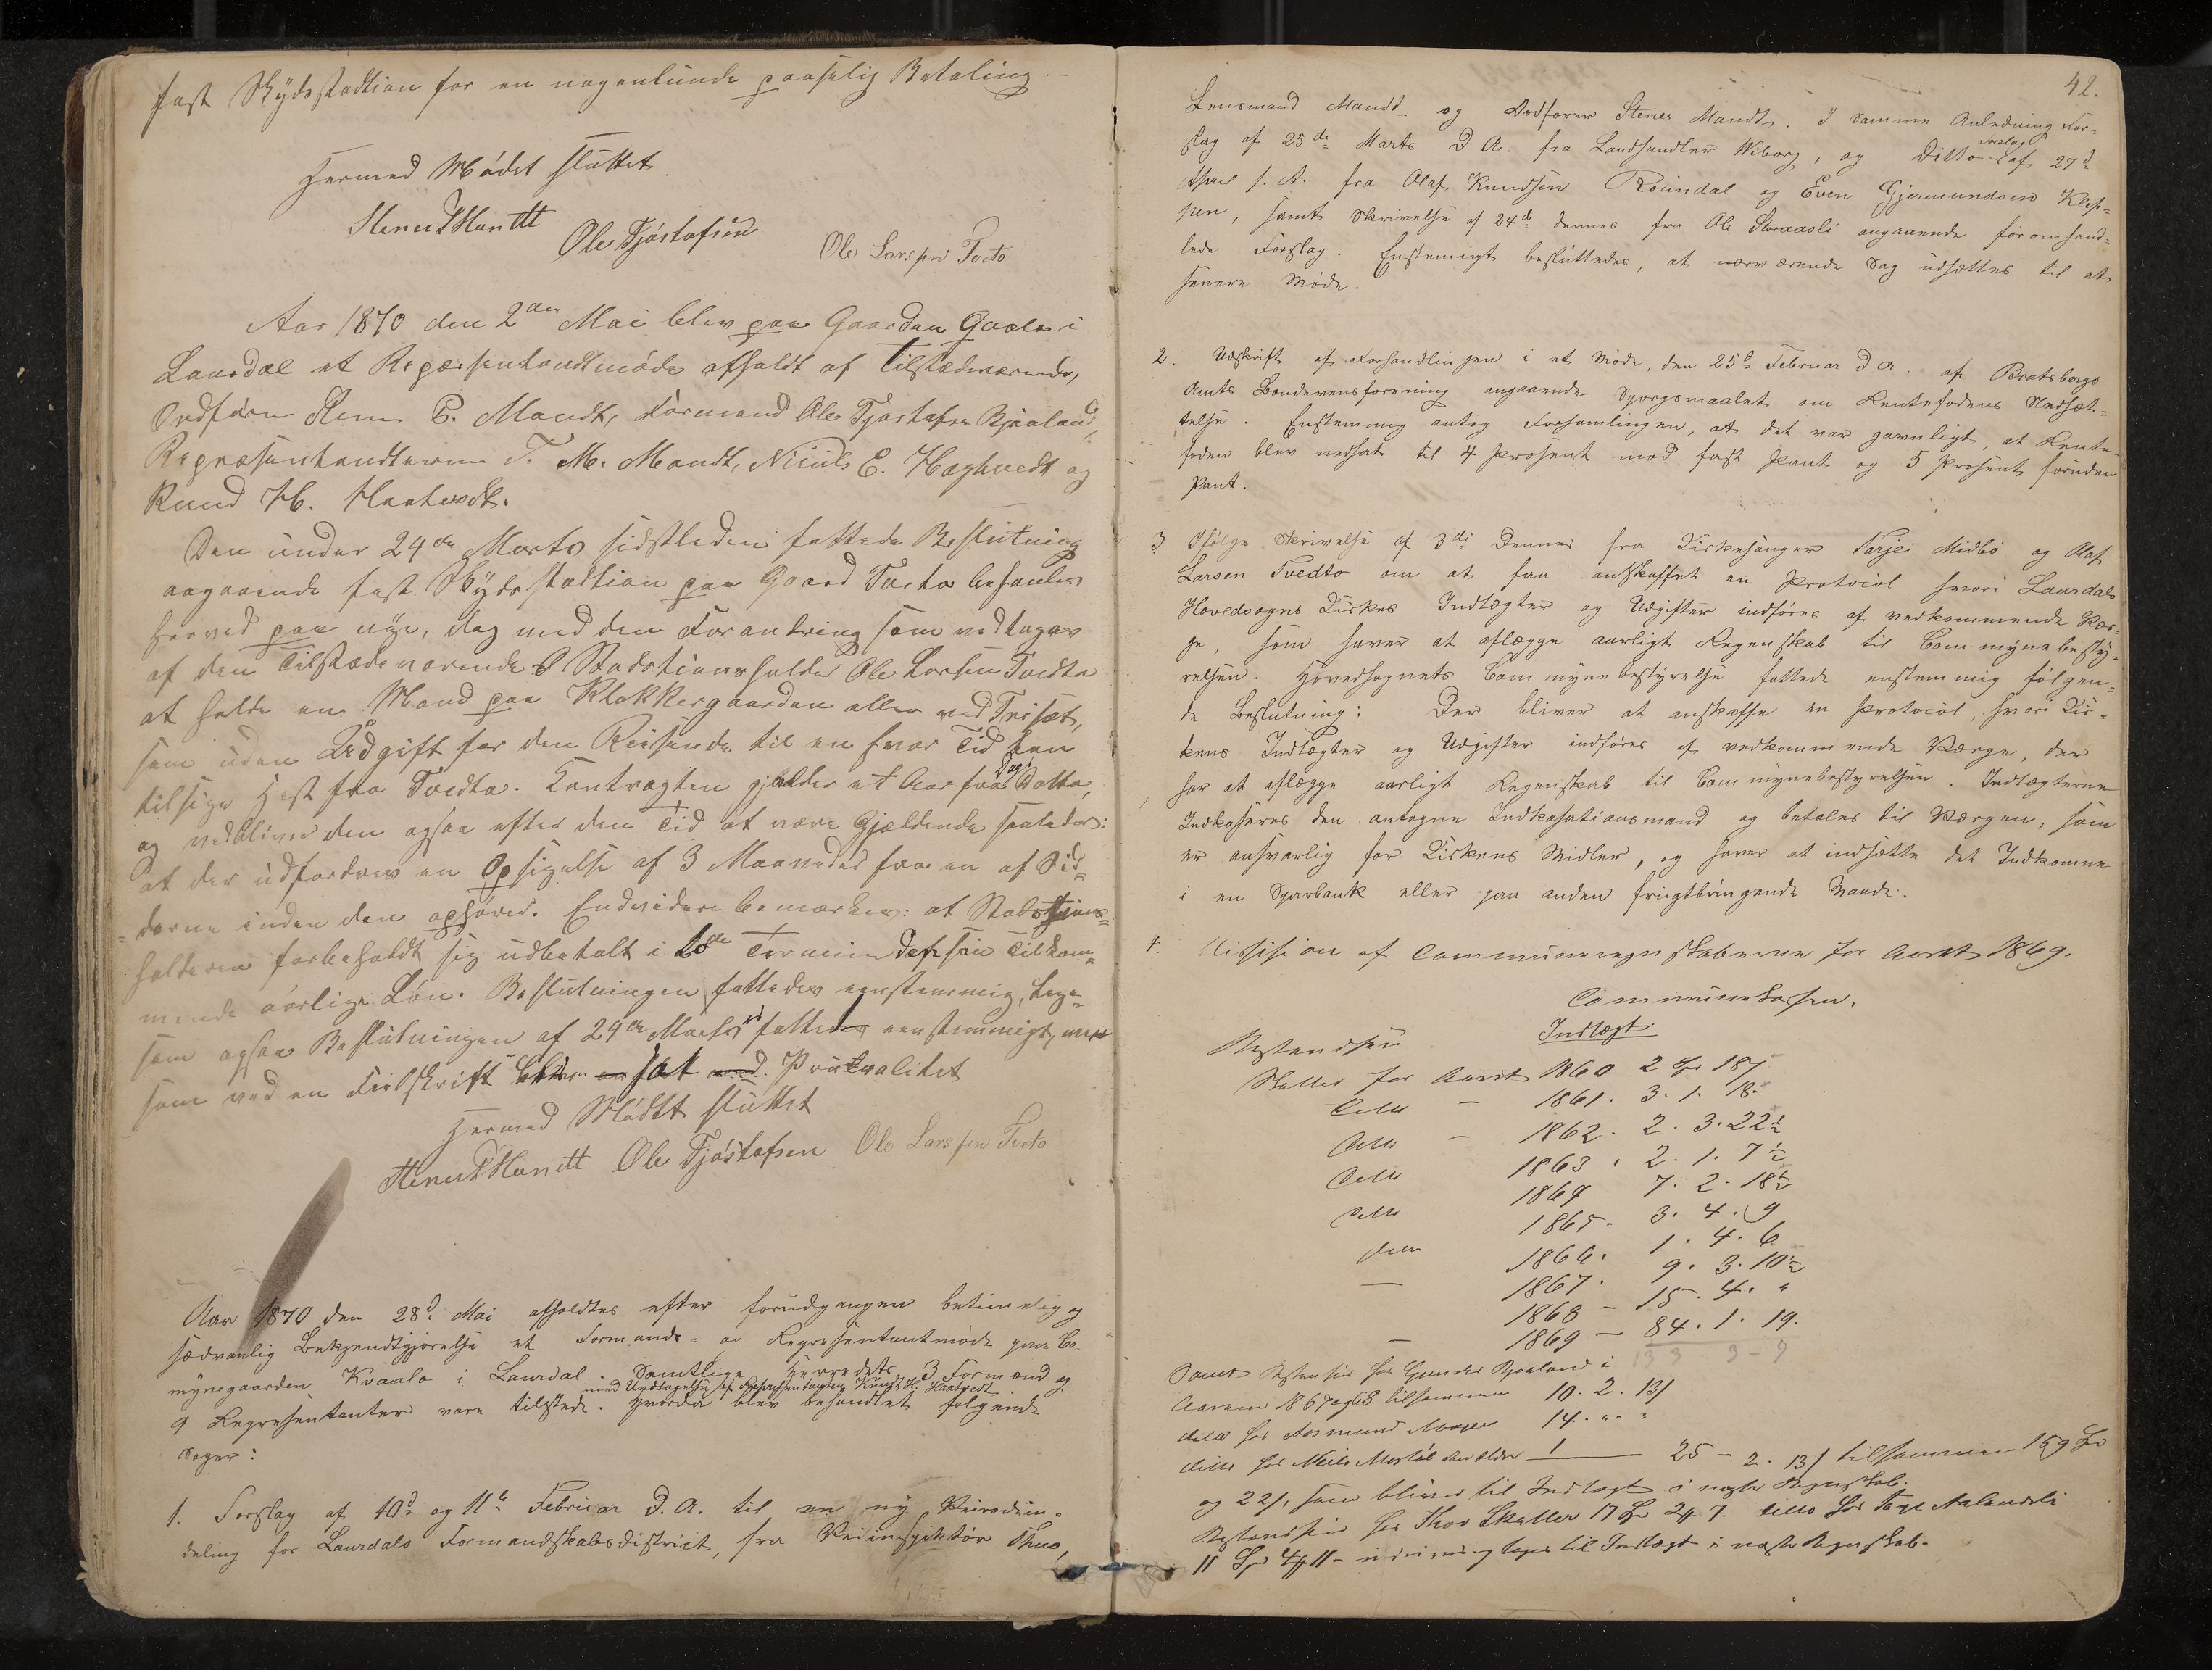 fast Skydsstadtion for en nogenlunde paaselig Betaling.-
Hermed Mødet sluttet
Ole Tjøstofsen
Ole Larssen Tveto
Aar 1870 den 2den Mai blev paa Gaarden Qvale i
Laurdal et Repræsenhandtmøde afholdt af Tilstædeværende,
Ordføren Stener P. Mandt, Formand Ole Tjøstofsen Bjaaland,
Repræsenhandterne T. M. Mandt, E. Haghvedt og
Knud H. Haatvedt.
Den under 24de Marts sidstleden fattede Beslutning
angaaende fast Skydsstadtion paa Gaard Tveto behandles
herved paa nye, dog med den Forandring som vedtages
af den Tilstædeværende Stadstionsholder Ole Larsen Tvedto
at holde en Mand paa Klokkergaarden eller ved Triset,
som uden Udgift for den Reisende til en hver Tid kan
tilsige Hest fra Tvedto. Kontragten gjælder et Aar fra Dags Datto,
og vedbliver den ogsaa efter den Tid at være Gjældende saaledes:
at der udfordres en Opsigelse af 3 Maaneder fra en af Sid-
derne inden den ophører. Endvidere bemærkes: at Stadstjons-
holderen forbeholdt sig udbetalt i 2de Terminer den som Tilkom-
mende aarlige Løn. Beslutningen fattedes eenstemmig, lige-
som ogsaa Beslutningen af 24de Marts fattedes eenstemmigt, men
som ved en Feilskrift sat Pruralitet
Hermed Mødet sluttet
Ole Tjøstofsen Ole Larssen Tveto
Aar 1870 den 28d Mai afholdtes efter forudgangen betimelig og
sædvanlig Bekjendtgjørelse et Formands- og Representantmøde paa Co-
mynegaarden Kvaale i Laurdal. Samtlige Herredets 3 Formænd og
9 Representanter vare tilstede. med Undtagelse af Representanten Knud H. Haatvedt Hvorda blev behandlet følgende
Sager:
1. Forslag af 10d og 11te Februar D. A. til en ny Veirodein-
deling for Laurdals Formandskabsdistrict, fra Veiinspektør Thue,
42.
Lensmand Mandt og Ordfører Stener Mandt. I samme Anledning For-
slag af 25de Marts D A. fra Landhandler Wiborg, og Ditto forslag af 27d
April s. A. fra Olaf Knudsen Roundal og Even Gjermundsen Klep-
pen, samt Skrivelse af 24d dennes fra Ole Storaasli angaaende foromhand-
lede Forslag. Enstemigt besluttedes, at nærværende Sag udsættes til et
senere Møde.
2. Udskrift af Forhandlingen i et Møde, den 25d Februar D A. af Bratsbergs
Amts Bondevensforening angaaende Spørgsmaalet om Rentefodens Nedsæt-
telse. Enstemmig antog Forsamlingen, at det var gavnligt, at Rente-
foden blev nedsat til 4 Prosent mod fast Pant og 5 Prosent foruden
Pant.
3 Ifølge Skrivelse af 3di Dennes fra Kirkesanger Tarjei Midbø og Olaf
Larsen Tvedto om at faa anskaffet en Protocol hvori Laurdals
Hovedsogns Kirkes Indtægter og Udgifter indføres af vedkommende Vær-
ge, som haver at aflægge aarligt Regenskab til Commynebesty-
relsen. Hovedsognets Commynebestyrelse fattede enstemmig følgen-
de Beslutning: Der bliver at anskaffe en Protocol, hvori Kir-
kens Indtægter og Udgifter indføres af vedkommende Værge, der
har at aflægge aarligt Regenskab til Commynebestyrelsen. Indtægterne
Indkaseres den antagne Indkasationsmand og betales til Værgen, som
er ansvarlig for Kirkens Midler, og haver at indsætte det Indkomne
i en Sparbank eller paa anden frugtbringende Maade.
4. Desision af Communeregnskaberne for Aaret 1869.
Communekassen.
Indtægt
Restandsen
Skatter for Aaret 1860 2 Sp 18/
Ditto — 1861. 3. 1. 18.
Ditto — 1862. 2. 3. 22½
Ditto 1863. 2. 1. 7½
Ditto 1864 7. 2. 18½
Ditto 1865. 3. 4. 9
— 1866. 1. 4. 6
1867. 9. 3. 10½
1868 — 15. 4. "
— 1869 — 84. 1. 19.
133 3-9
Samt Restanse hos Gunder Bjaaland i
Aarene 1867 og 68 tilsammen 10. 2. 13/
ditto hos Aasmund Moen 14. " "
ditto hos Neils den ældre 1 — 25 — 2. 13/ tilsammen 159 Sp
og 22/, som bliver til Indtægt i næste Regnskab.
Restandsen hos Thov Skatter 17 Sp 2# 7. ditto hos
11 Sp 4# 11 til Indtægt i næste Regnskab.